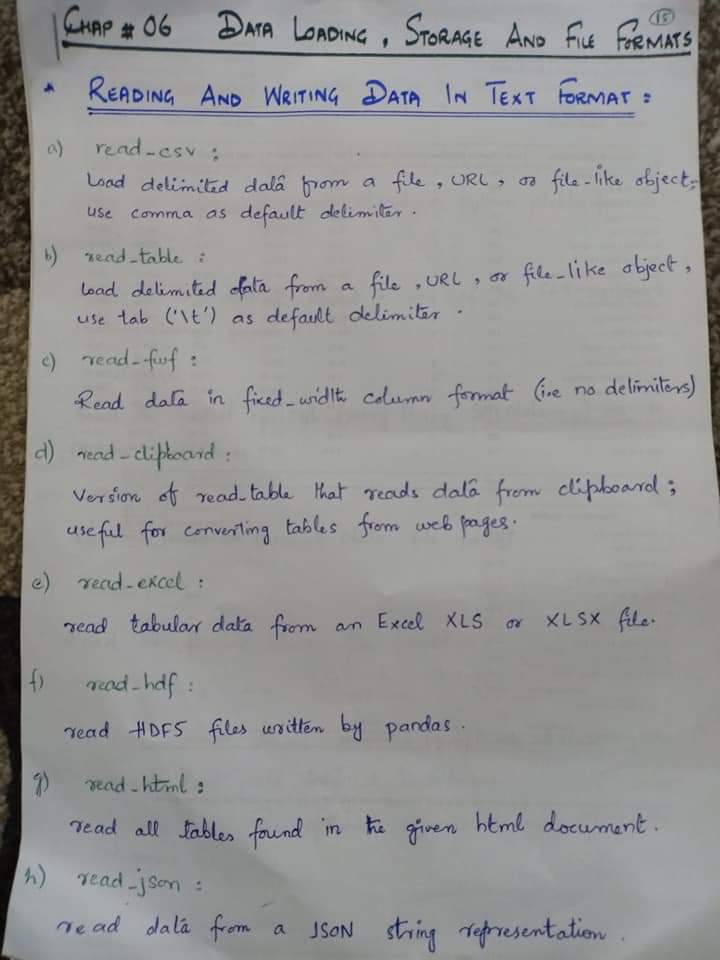 15
CHAP # 06 DATA LOADING, STORAGE AND FILE FORMATS
* READING AND WRITING DATA IN TEXT FORMAT :
a) read_csv :
Load delimited data from a file, URL, or file-like object,
use comma as default delimiter.
b) read_table :
Load delimited data from a file, URL, or file_like object,
use tab ('\t') as default delimiter.
c) read_fwf :
Read data in fixed_width column format (i.e no delimiters)
d) read_clipboard :
Version of read_table that reads data from clipboard ;
useful for converting tables from web pages.
e) read_excel :
read tabular data from an Excel XLS or XLSX file.
f) read_hdf :
read HDF5 files written by pandas.
g) read_html :
read all tables found in the given html document.
h) read_json :
read data from a JSON string representation.